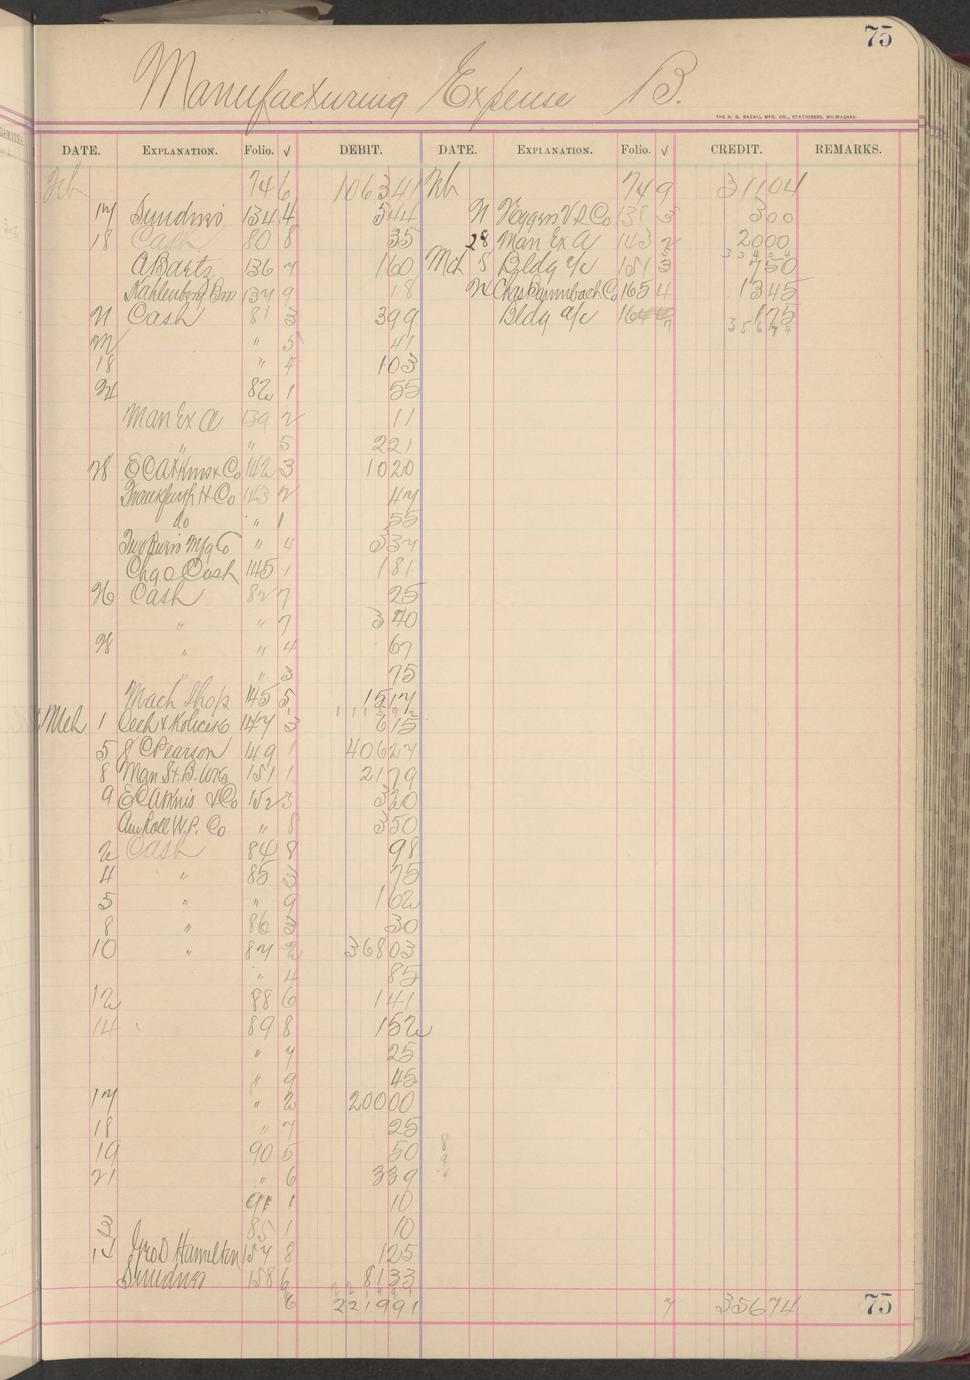 75
Manufacturing Expense B.
THE H. G. RAZALL MFG. CO., STATIONERS, MILWAUKEE.
DATE. EXPLANATION. Folio. √ DEBIT. DATE. EXPLANATION. Folio. √ CREDIT. REMARKS.
Feb 74 6 106341 Feb 74 9 31104
17 Sundries 134 4 544 138 3 300
18 Cash 80 8 35 28 Man Ex A 143 2 2000
A Bartz 136 7 160 Mch 5 Bldg a/c 151 3 750
Kahlenberg Bros 137 9 18 Co 165 4 1345
Cash 81 3 399 Bldg a/c 175
" 5 41
18 " 4 103
82 1 55
Man Ex A 139 2 11
" " 5 221
28 E C Atkins & Co 142 3 1020
Frankfurth H Co 143 2 47
do " 1 55
Two Rivers Mfg Co " 4 337
Chgo Cash 145 1 181
26 Cash 82 7 25
" " 7 340
28 " " 4 67
" " 3 75
Mach Shop 145 5 1517
Mch 1 Cech & 147 3 615
5 J C Pearson 149 1 40627
8 Man St. B. Wks 151 1 2179
9 E C Atkins & Co 152 3 320
Am Roll W.P. Co " 8 350
2 Cash 84 8 98
4 " 85 3 75
5 " " 9 162
8 " 86 3 30
10 " 87 2 36803
" 4 85
12 88 6 141
14 89 8 152
" 7 25
" 9 45
17 " 2 20000
18 " 7 25
19 90 5 50
21 " 6 339
91 1 10
3 85 1 10
14 Geo D Hamilton 157 8 125
Sundries 158 6 8133
6 221991 7 35674 75